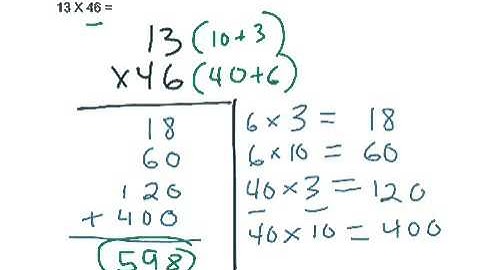 13 X 46 =
13 (10+3)
x 46 (40+6)
18
60
120
+ 400
598
6 x 3 = 18
6 x 10 = 60
40 x 3 = 120
40 x 10 = 400